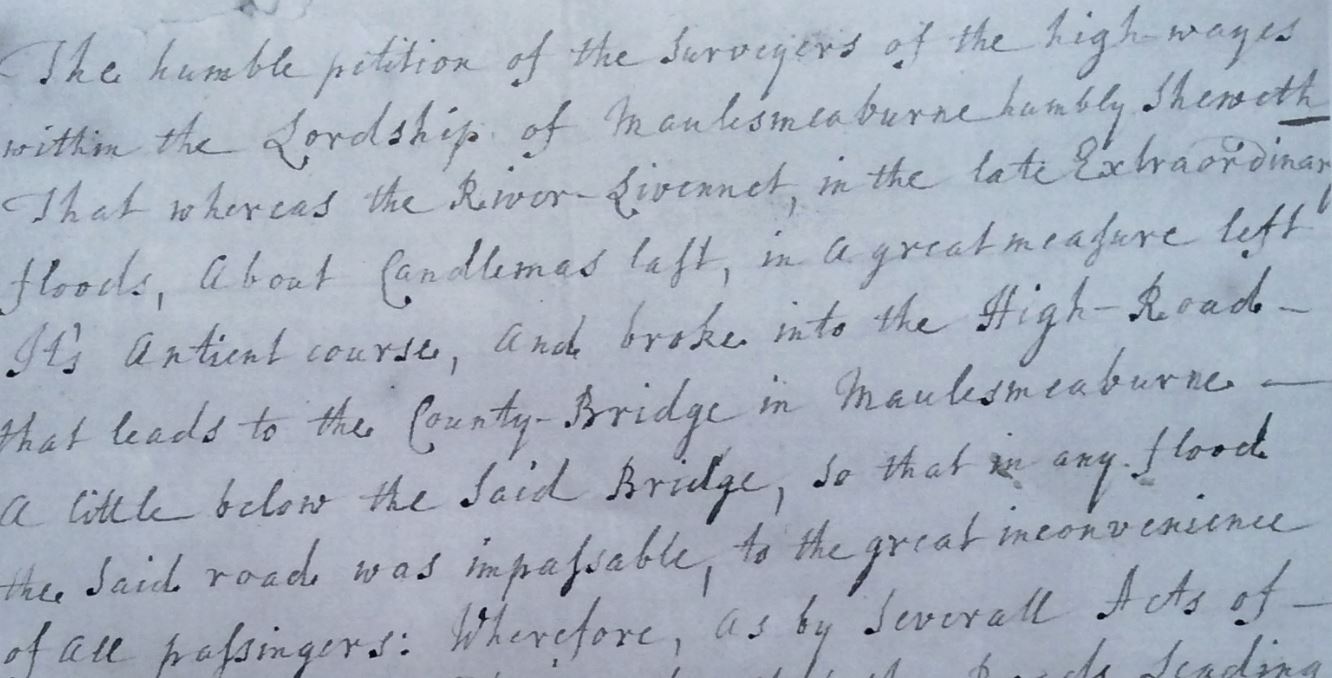 The humble petition of the Surveyers of the high-wayes
within the Lordship of Maulesmeaburne humbly Sheweth
That whereas the River-Livennet, in the late Extraordinary
floods, About Candlemas last, in A great measure left
It's Antient course, And broke into the High-Road-
that leads to the County-Bridge in Maulesmeaburne —
A little below the Said Bridge, So that in any flood
the Said road was impassable, to the great inconvenience
of All passingers: Wherefore, As by Severall Acts of —
Roads Leading